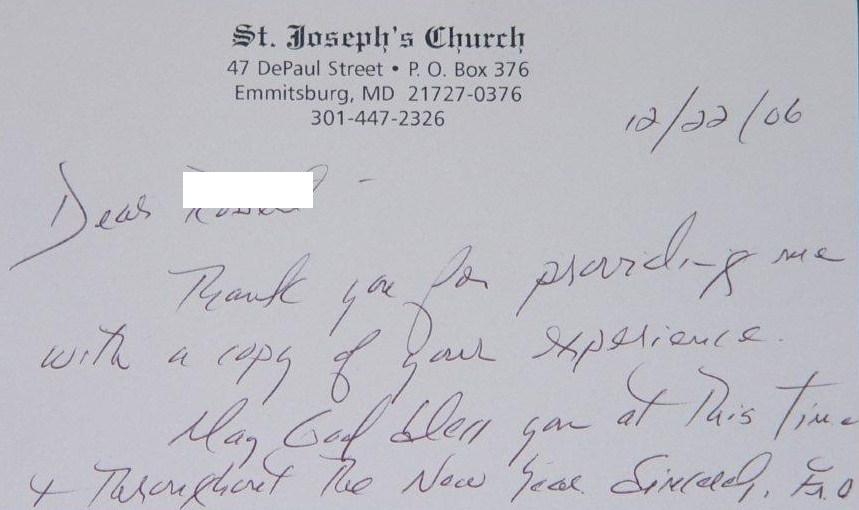 St. Joseph's Church
47 DePaul Street • P. O. Box 376
Emmitsburg, MD 21727-0376
301-447-2326
12/22/06
Dear
Thank you for providing me
with a copy of your experience.
May God bless you at This Time
+ Throughout The New Year. Sincerely, Fr. O